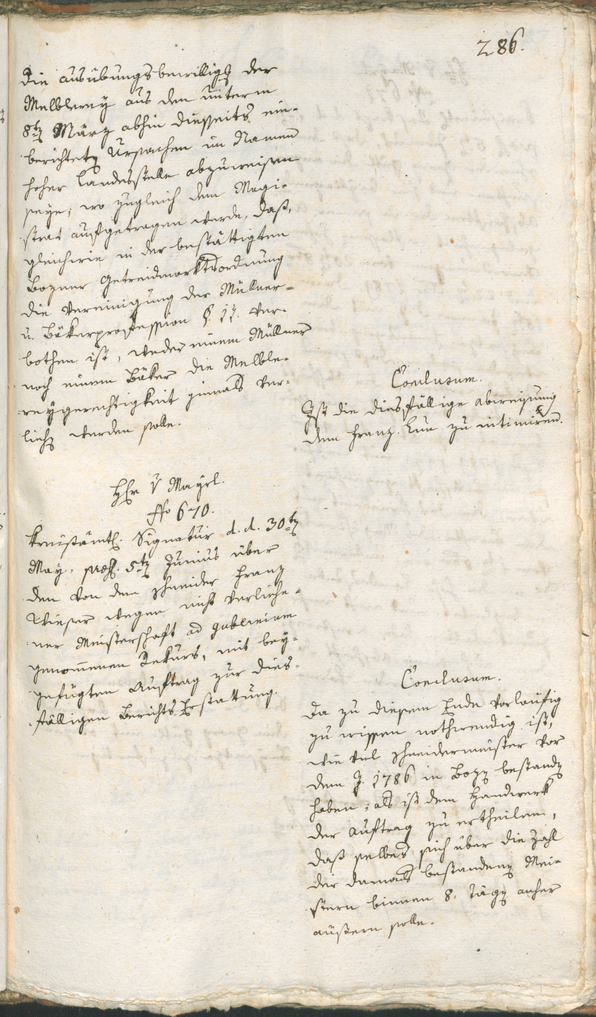 286.
die Ausübungsbewilligg der
Melblerey aus den unterm
8tn März abhin diesseits ein-
berichteten Ursachen im Namen
hoher Landesstelle abzuweisen
seye; wo zugleich dem Magi-
strat aufgetragen werde, daß,
gleichwie in der bestättigten
Bozner Getreidmarktsordnung
die Vereinigung der Müllner-
u. Bökerprofession § 17. ver-
bothen ist, weder einem Müllner
noch einem Bäker die Melble-
reygerechtigkeit jemals ver-
liehen werden solle.
Conclusum.
Ist die diesfällige Abweisung
dem Franz Lun zu intimiren.
Hr v Mayrl.
No 670.
Kreisämtl. Signatur d. d. 30tn
May, præs. 5tn Junius über
den von dem Schneider Franz
Wieser wegen nicht verliehe-
ner Meisterschaft ad Gubernium
genommenen Rekurs, mit bey-
gefügten Auftrag zur dies-
fälligen Berichts Erstattung.
Conclusum.
Da zu diesem Ende vorläufig
zu wissen nothwendig ist,
wie viel Schneidermeister vor
dem J. 1786 in Bozn bestandn
haben; als ist dem Handwerk
der Auftrag zu ertheilen,
daß selbes sich über die Zahl
der damals bestandenen Mei-
stern binnen 8. Tägn anher
äußern solle.